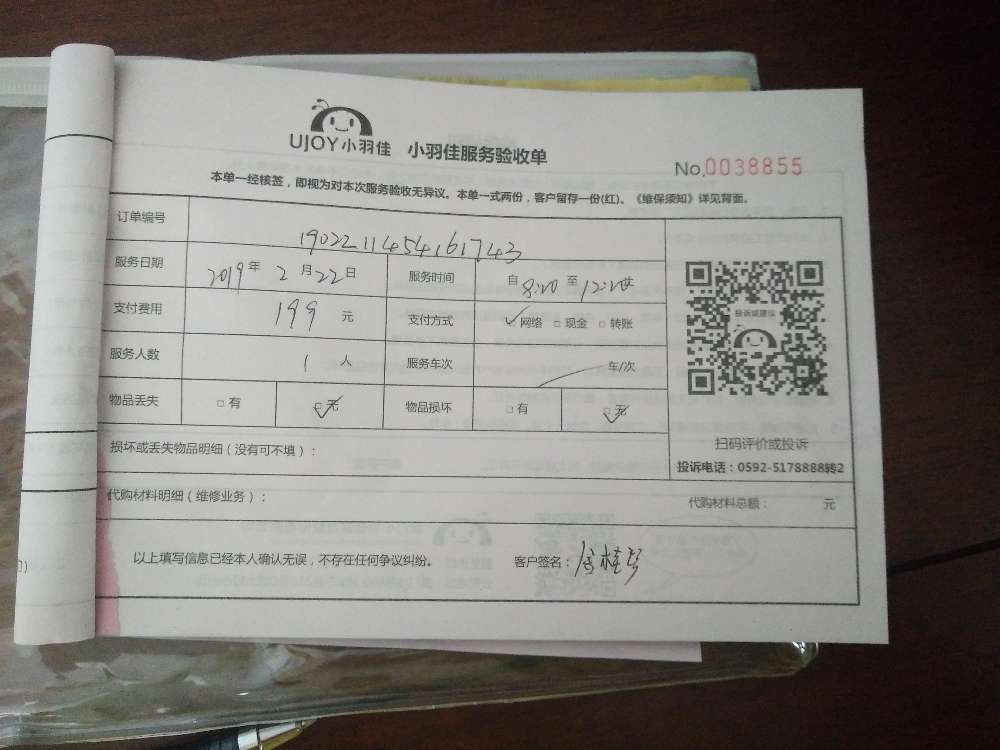 UJOY小羽佳 小羽佳服务验收单
No.0038855
本单一经核签，即视为对本次服务验收无异议。本单一式两份，客户留存一份(红)。《维保须知》详见背面。
订单编号 1902211454161743
服务日期 2019年 2月22日 服务时间 自8:20至12:20止
支付费用 199 元 支付方式 ☑网络 □现金 □转账
服务人数 1 人 服务车次 车/次
物品丢失 □有 ☑无 物品损坏 □有 ☑无
投诉或建议
扫码评价或投诉
投诉电话：0592-5178888转2
损坏或丢失物品明细（没有可不填）：
代购材料明细（维修业务）： 代购材料总额： 元
以上填写信息已经本人确认无误，不存在任何争议纠纷。 客户签名：